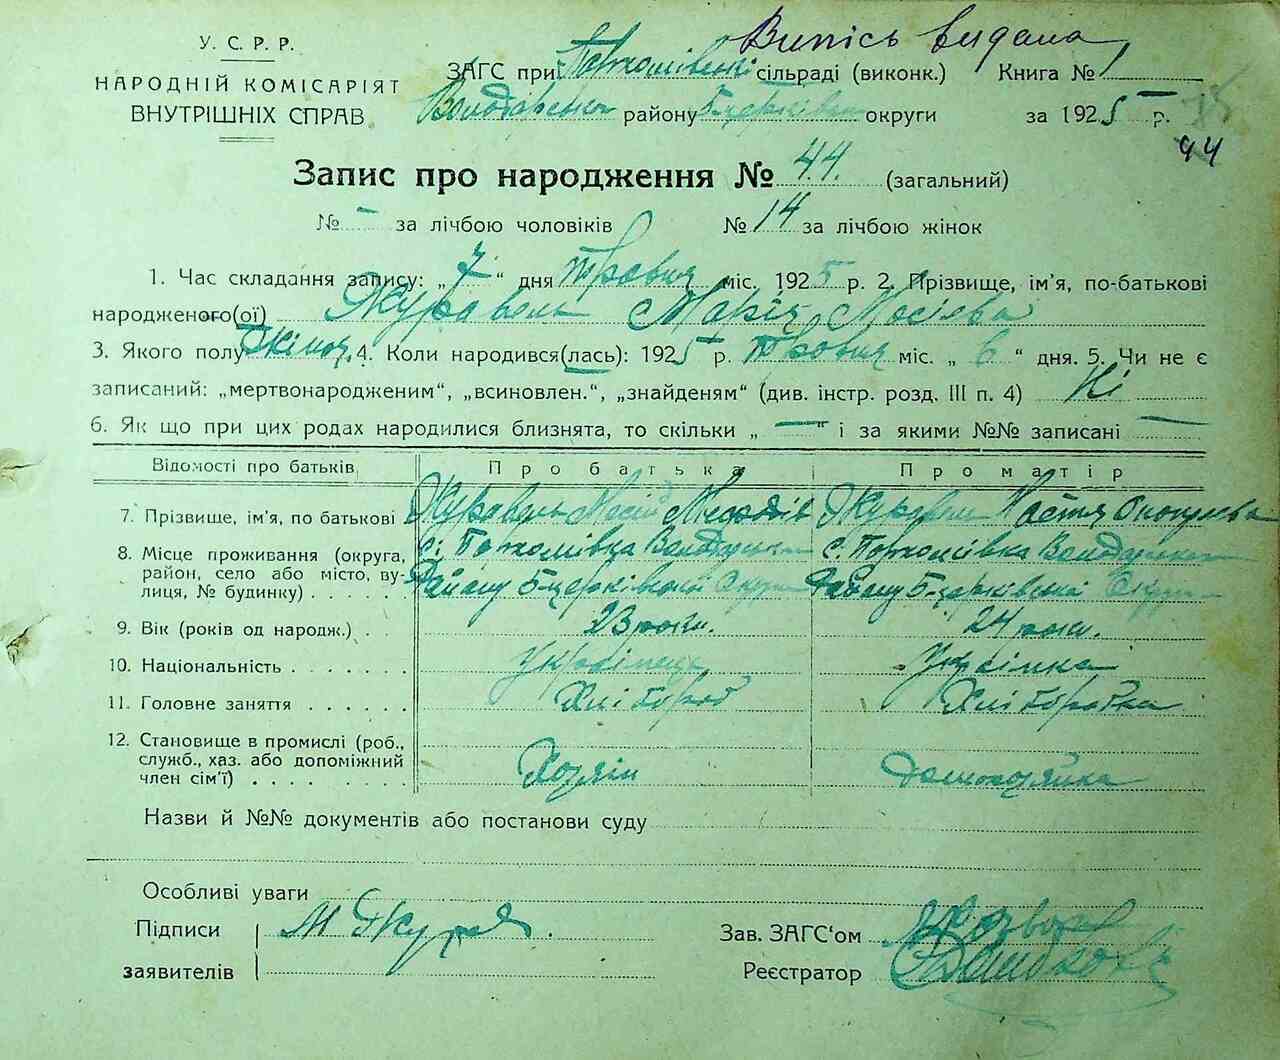 Випісь видана
У. С. Р. Р.
НАРОДНІЙ КОМІСАРІЯТ
ВНУТРІШНІХ СПРАВ
ЗАГС при сільраді (виконк.) Книга № 1
району Б-церківськ округи за 1925 р.
44
Запис про народження № 44 (загальний)
№ – за лічбою чоловіків № 14 за лічбою жінок
1. Час складання запису: „ 7 “ дня травня міс. 1925 р. 2. Прізвище, ім'я, по-батькові
народженого(ої) Журавель Марія Мосієва
3. Якого полу жіноч. 4. Коли народився(лась): 1925 р. травня міс. „ 6 “ дня. 5. Чи не є
записаний: „мертвонародженим“, „всиновлен.“, „знайденям“ (див. інстр. розд. III п. 4) Ні
6. Як що при цих родах народилися близнята, то скільки „ — “ і за якими №№ записані —
Відомості про батьків Про батька Про матір
7. Прізвище, ім'я, по батькові Журавель Мосій Журавель Настя
8. Місце проживання (округа, район, село або місто, вулиця, № будинку) . . . . .
с. с.
району Б-церківської Округи району Б-церківської Округи
9. Вік (років од народж.) . 23 роки. 24 роки.
10. Національність . . . . . . Українець Українка
11. Головне заняття . . . . . . Хлібороб Хліборобка
12. Становище в промислі (роб., служб., хаз. або допоміжний член сім'ї) . . . . . . . . Хозяін Домохозяйка
Назви й №№ документів або постанови суду
Особливі уваги
Підписи М Жура
заявителів
Зав. ЗАГС'ом
Реєстратор